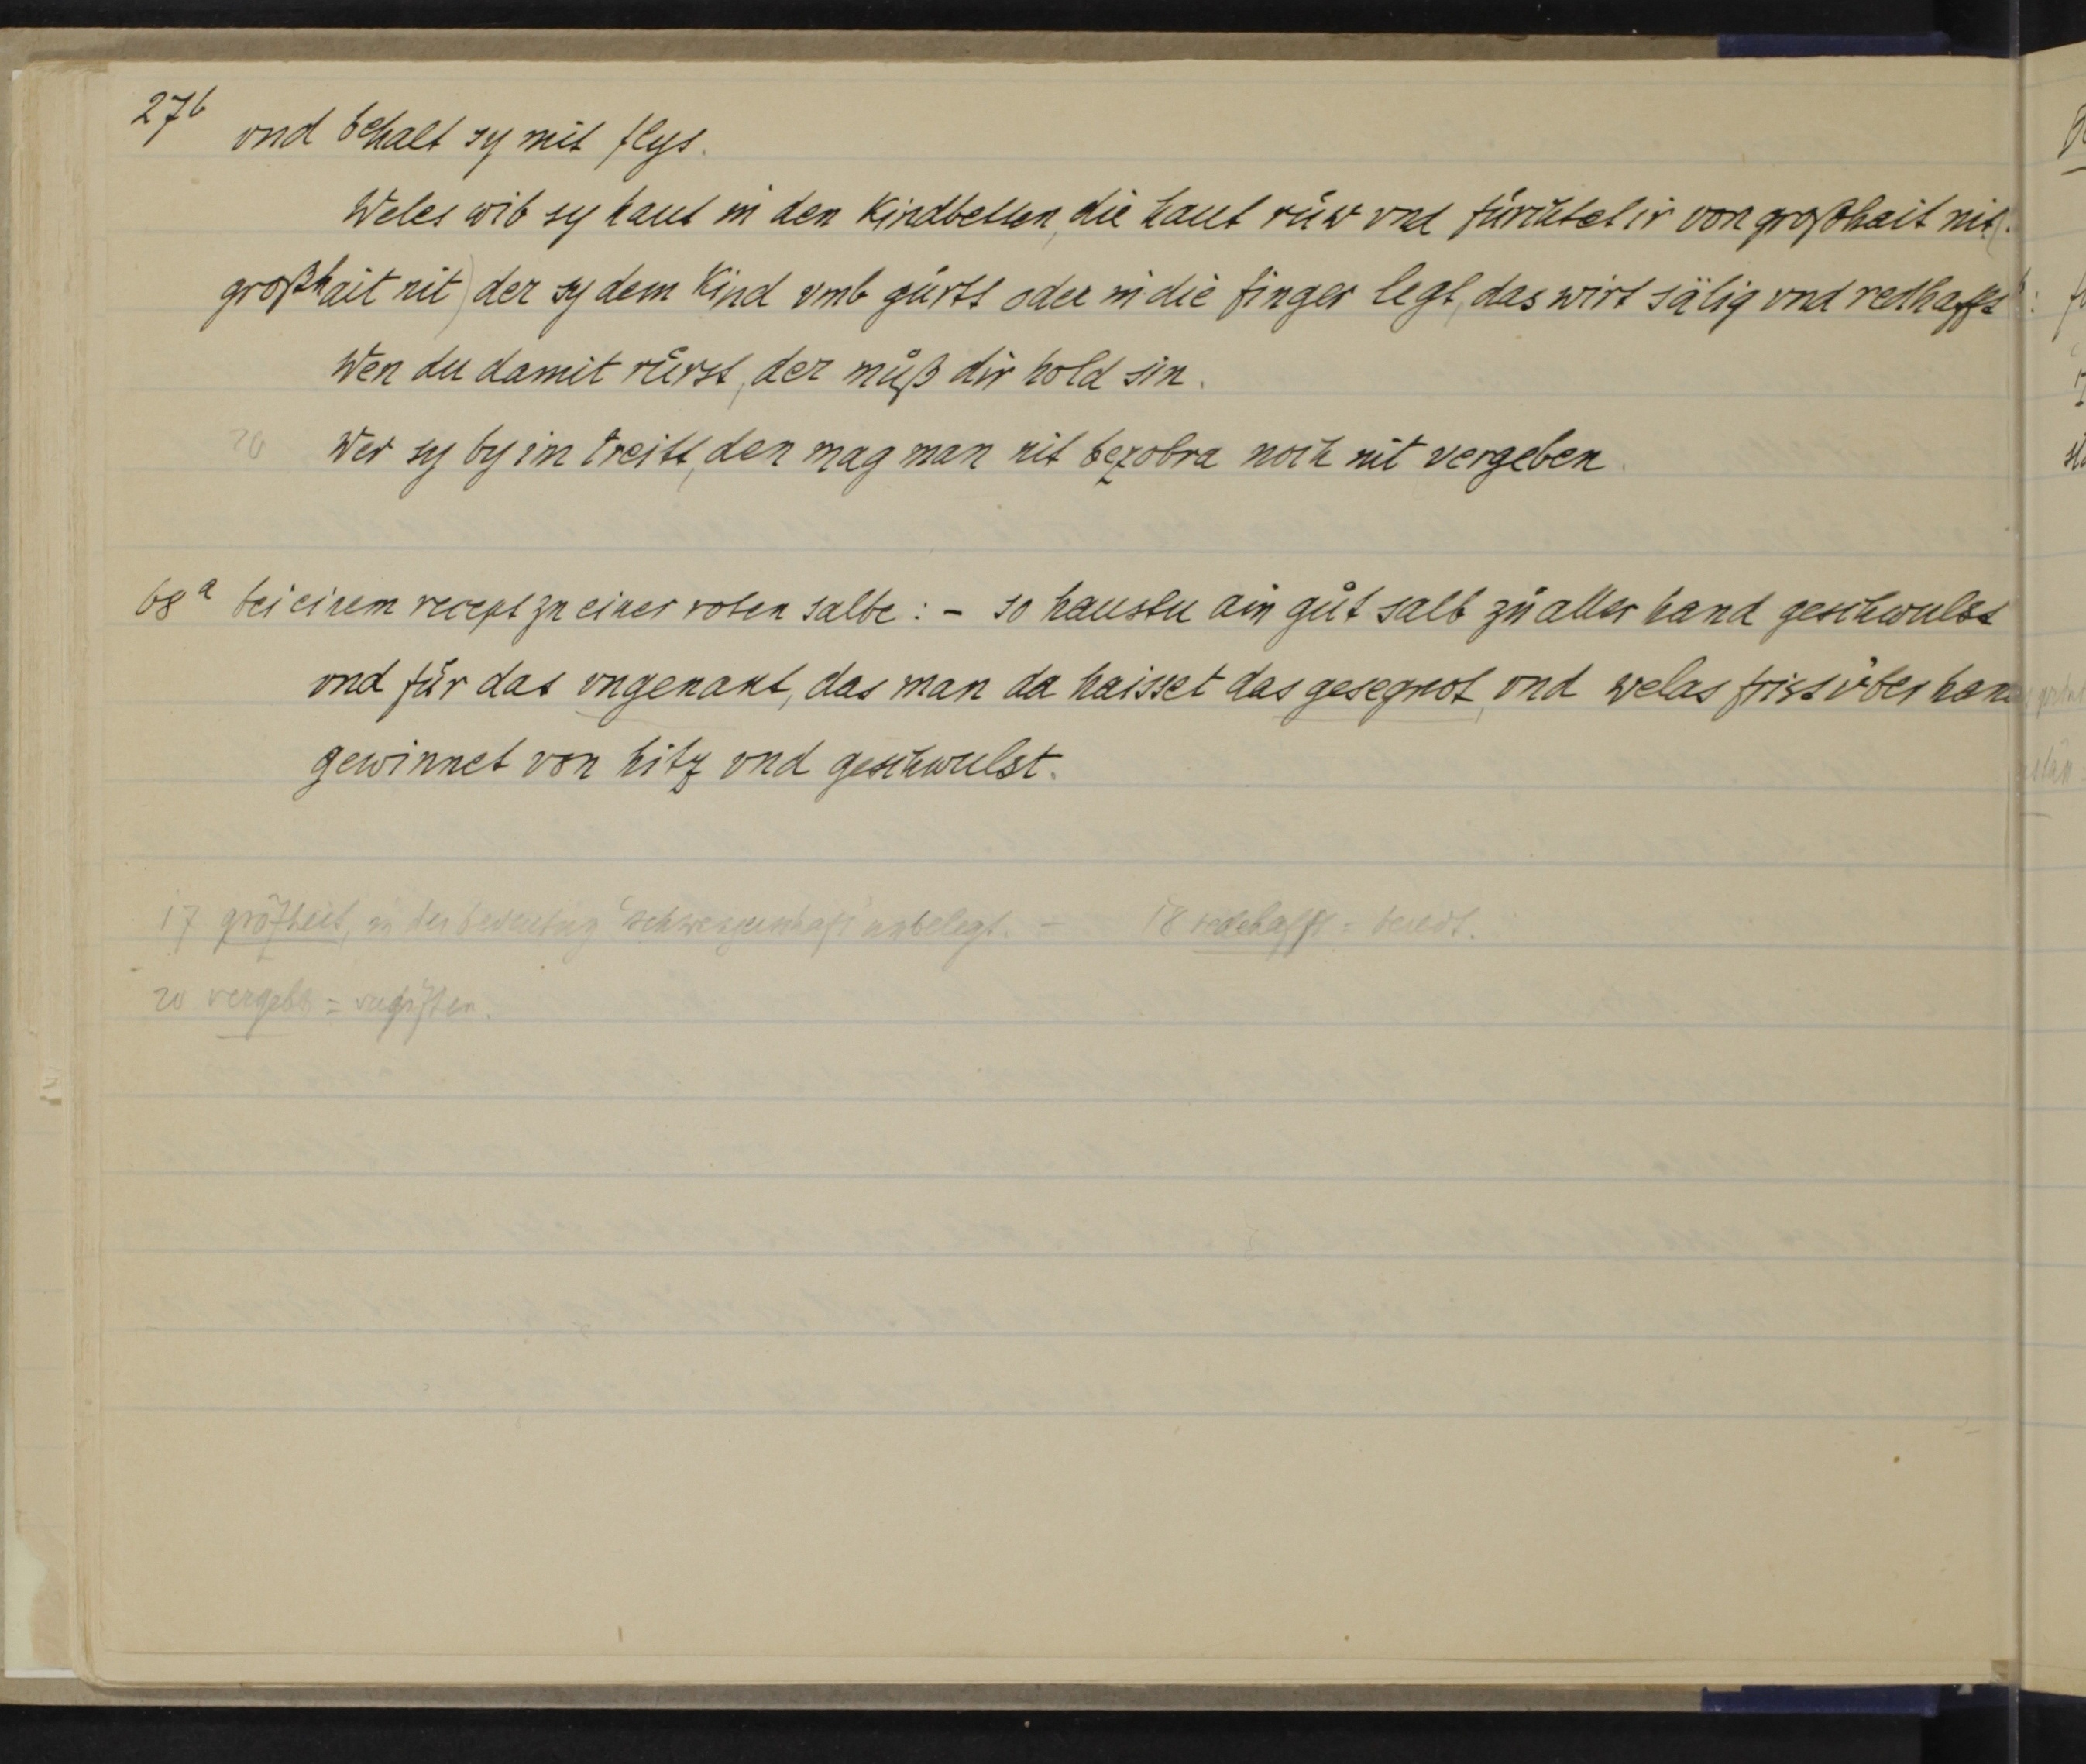 27b und behalt sy mit flys.
Weles wib sy haut in den Kindbetten, die haut rüw vnd fürchtet ir von großhait nit (.
großhait nit) der sy dem Kind vmb gürtt oder in die finger legt, das wirt sälig vnd redhafft
Wen du damit rürst, der můß dir hold sin.
20 Wer sy by im treitt, den mag man nit bezobra noch nit vergeben.
68a bei einem recept zu einer roten salbe: - so haustu ain gůt salb zů aller hand geschwulst
vnd für das vngenant, das man da haisset das gesegnot, vnd welas frist über han
gewinnet von hitz vnd geschwulst.
17 großheit, in der bedeutung "schwangerschaft" unbelegt. - 18 redehafft = beredt.
20 vergeben = vergiften.